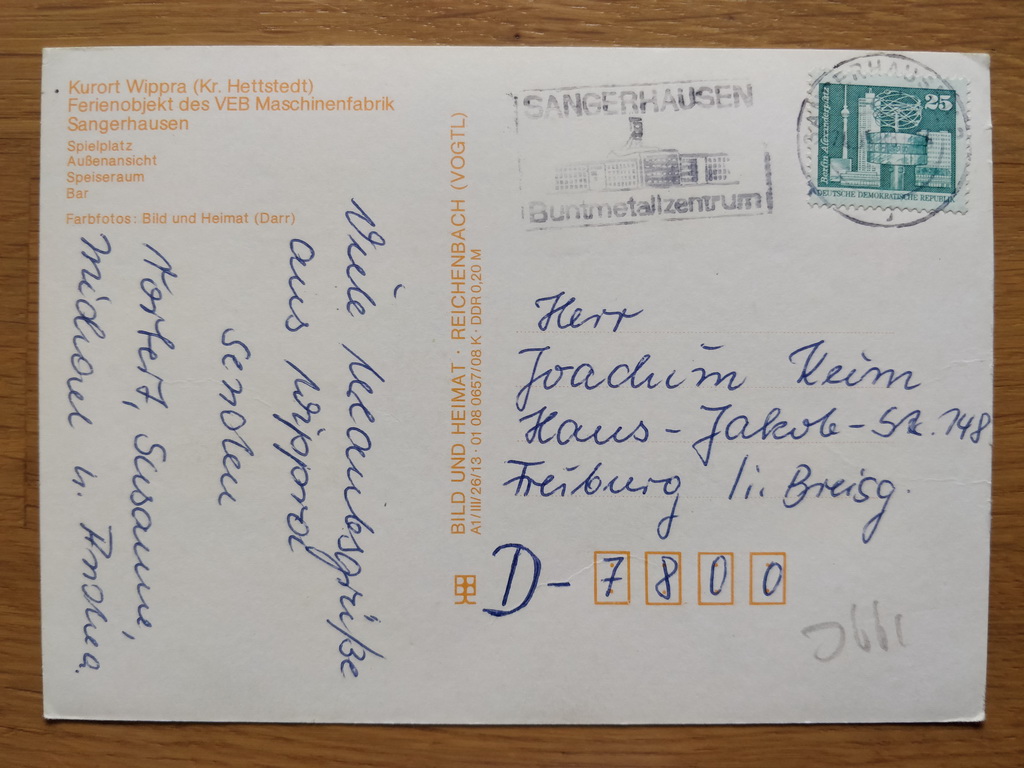 Kurort Wippra (Kr. Hettstedt)
Ferienobjekt des VEB Maschinenfabrik
Sangerhausen
Spielplatz
Außenansicht
Speiseraum
Bar
Farbfotos: Bild und Heimat (Darr)
Viele Urlaubsgrüße
aus Wippra
senden
Norbert, Susanne,
Michael u. Andrea.
BILD UND HEIMAT · REICHENBACH (VOGTL)
A1/III/26/13 · 01 08 0657/08 K · DDR 0,20 M
SANGERHAUSEN
Buntmetallzentrum
SANGERHAUSEN
25
Berlin, Alexanderplatz
DEUTSCHE DEMOKRATISCHE REPUBLIK
Herr
Joachim Keim
Hans-Jakob-Str. 148
Freiburg / i. Breisg.
D- 7 8 0 0